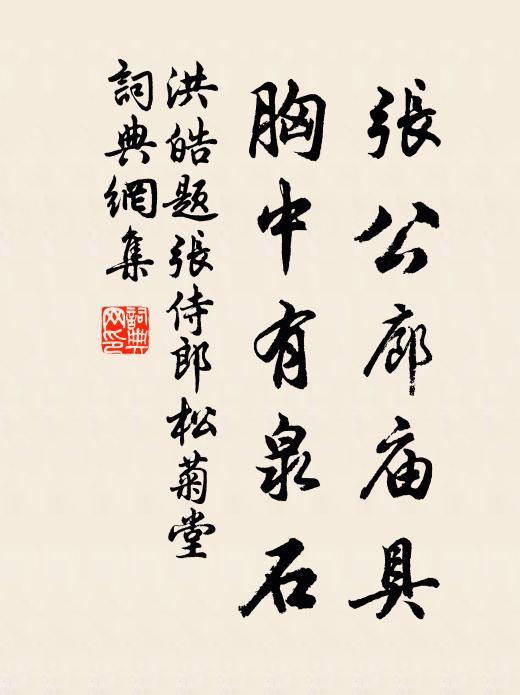 張公廊庙具
胸中有泉石
洪皓题張侍郎松菊堂
詞典網集
詞典
网印